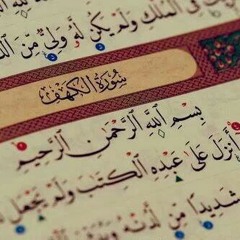 فِي ٱلْمُلْكِ وَلَمْ يَكُن لَّهُۥ وَلِيٌّ مِّنَ
سُورَةُ الكَهْفِ
بِسْمِ ٱللَّهِ ٱلرَّحْمَٰنِ ٱلرَّحِيمِ
أَنزَلَ عَلَىٰ عَبْدِهِ ٱلْكِتَٰبَ وَلَمْ يَجْعَل
شَدِيدًا مِّن لَّدُنْهُ